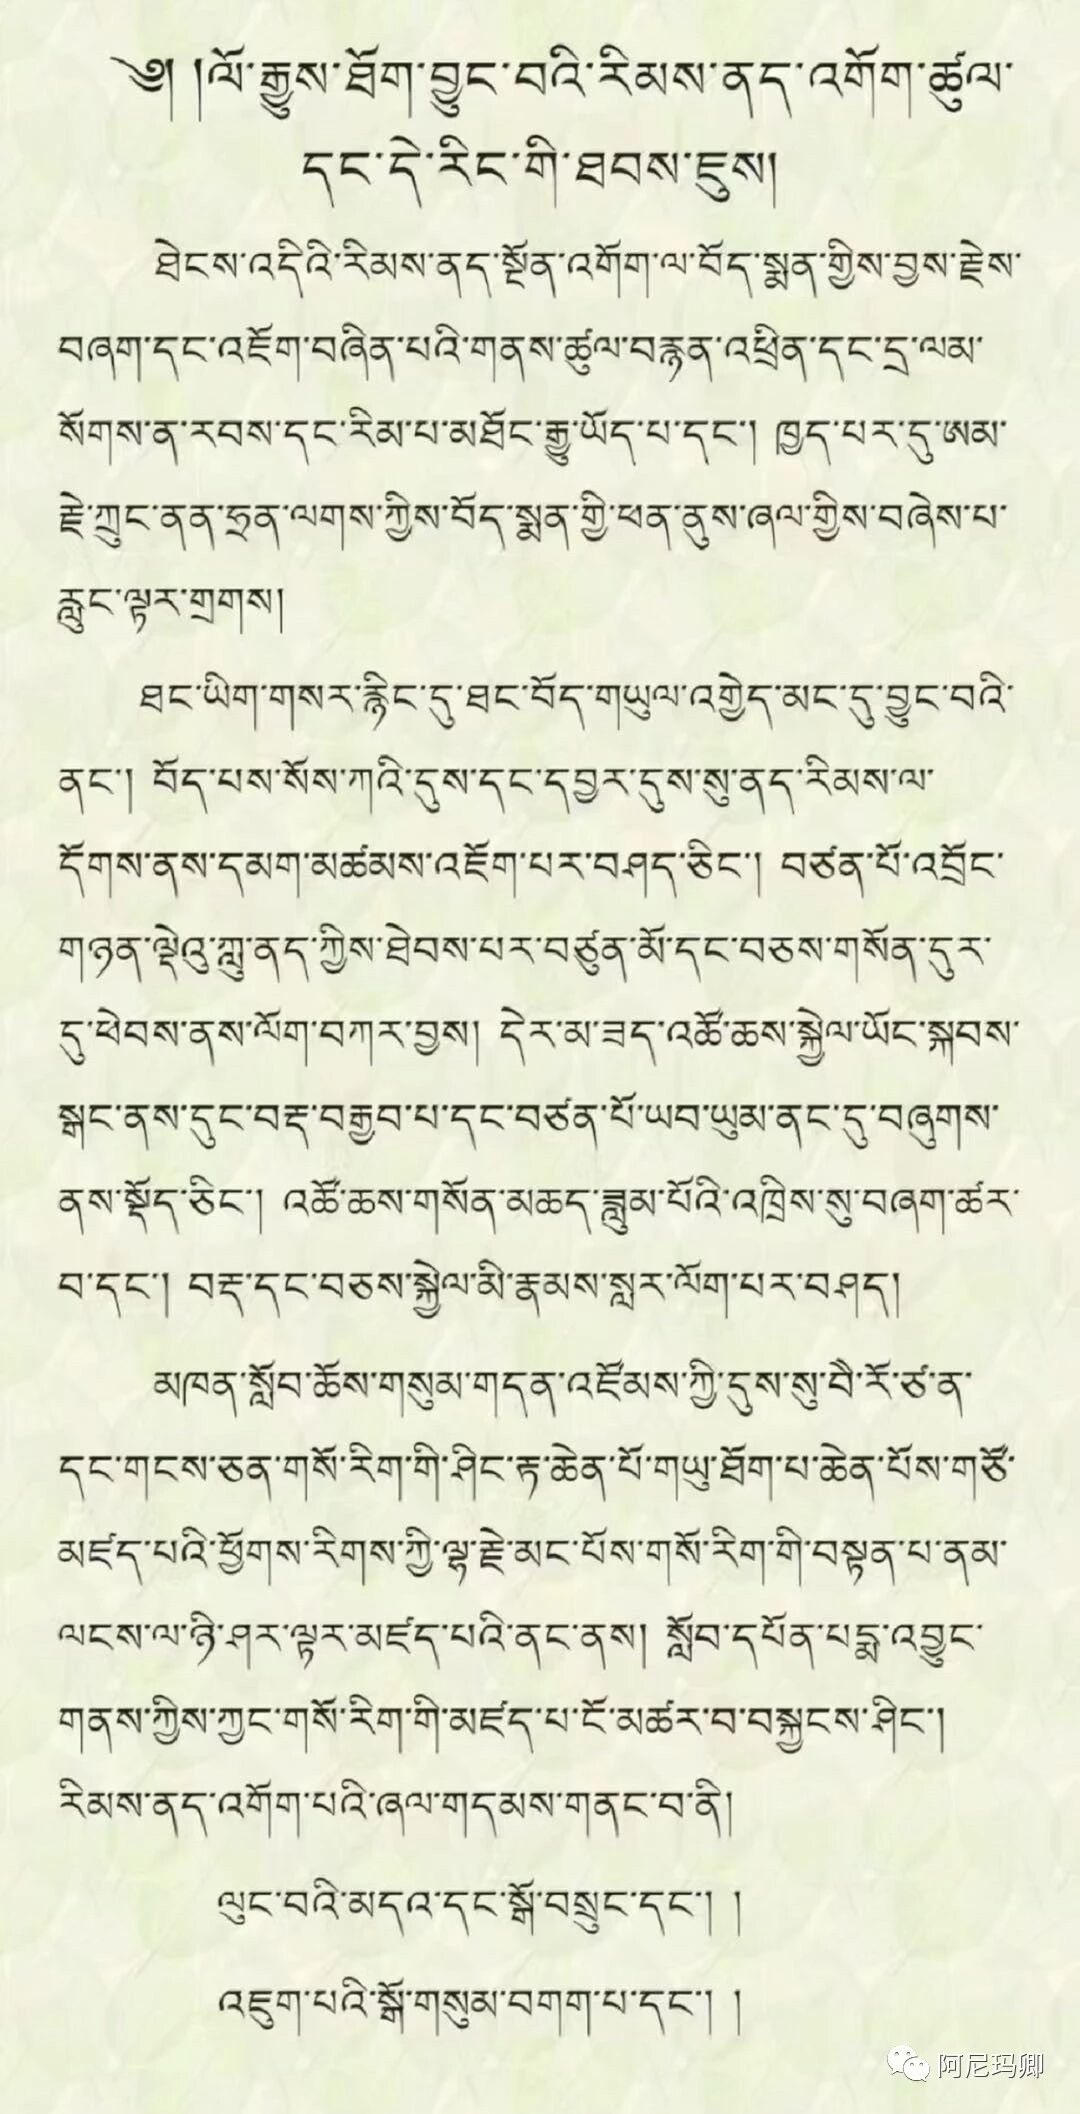 ༄། །ལོ་རྒྱུས་ཐོག་བྱུང་བའི་རིམས་ནད་འགོག་ཚུལ་
དང་དེ་རིང་གི་ཐབས་ཇུས།
ཐེངས་འདིའི་རིམས་ནད་སྔོན་འགོག་ལ་བོད་སྨན་གྱིས་བྱས་རྗེས་
བཞག་དང་འཇོག་བཞིན་པའི་གནས་ཚུལ་བརྙན་འཕྲིན་དང་དྲ་ལམ་
སོགས་ན་རབས་དང་རིམ་པ་མཐོང་རྒྱུ་ཡོད་པ་དང་། ཁྱད་པར་དུ་ཨམ་
རྗེ་ཀྲུང་ནན་ཧྲན་ལགས་ཀྱིས་བོད་སྨན་གྱི་ཕན་ནུས་ཞལ་གྱིས་བཞེས་པ་
རླུང་ལྟར་གྲགས།
ཐང་ཡིག་གསར་རྙིང་དུ་ཐང་བོད་གཡུལ་འགྱེད་མང་དུ་བྱུང་བའི་
ནང་། བོད་པས་སོས་ཀའི་དུས་དང་དབྱར་དུས་སུ་ནད་རིམས་ལ་
དོགས་ནས་དམག་མཚམས་འཇོག་པར་བཤད་ཅིང་། བཙན་པོ་འབྲོང་
གཉན་ལྡེའུ་ཀླུ་ནད་ཀྱིས་ཐེབས་པར་བཙུན་མོ་དང་བཅས་གསོན་དུར་
དུ་ཕེབས་ནས་ལོག་བཀར་བྱས། དེར་མ་ཟད་འཚོ་ཆས་སྐྱེལ་ཡོང་སྐབས་
སྒང་ནས་དུང་བརྡ་བརྒྱབ་པ་དང་བཙན་པོ་ཡབ་ཡུམ་ནང་དུ་བཞུགས་
ནས་སྡོད་ཅིང་། འཚོ་ཆས་གསོན་མཆད་ཟླུམ་པོའི་འཁྲིས་སུ་བཞག་ཚར་
བ་དང་། བརྡ་དང་བཅས་སྐྱེལ་མི་རྣམས་སླར་ལོག་པར་བཤད།
མཁན་སློབ་ཆོས་གསུམ་གདན་འཛོམས་ཀྱི་དུས་སུ་བཻ་རོ་ཙ་ན་
དང་གངས་ཅན་གསོ་རིག་གི་ཤིང་རྟ་ཆེན་པོ་གཡུ་ཐོག་པ་ཆེན་པོས་གཙོ་
མཛད་པའི་ཕྱོགས་རིགས་ཀྱི་ལྷ་རྗེ་མང་པོས་གསོ་རིག་གི་བསྟན་པ་ནམ་
ལངས་ལ་ཉི་ཤར་ལྟར་མཛད་པའི་ནང་ནས། སློབ་དཔོན་པདྨ་འབྱུང་
གནས་ཀྱིས་ཀྱང་གསོ་རིག་གི་མཛད་པ་ངོ་མཚར་བ་བསྐྱངས་ཤིང་།
རིམས་ནད་འགོག་པའི་ཞལ་གདམས་གནང་བ་ནི།
ལུང་བའི་མདའ་དང་སྒོ་བསྲུང་དང་། །
འཇུག་པའི་སྒོ་གསུམ་བགག་པ་དང་། །
阿尼玛卿